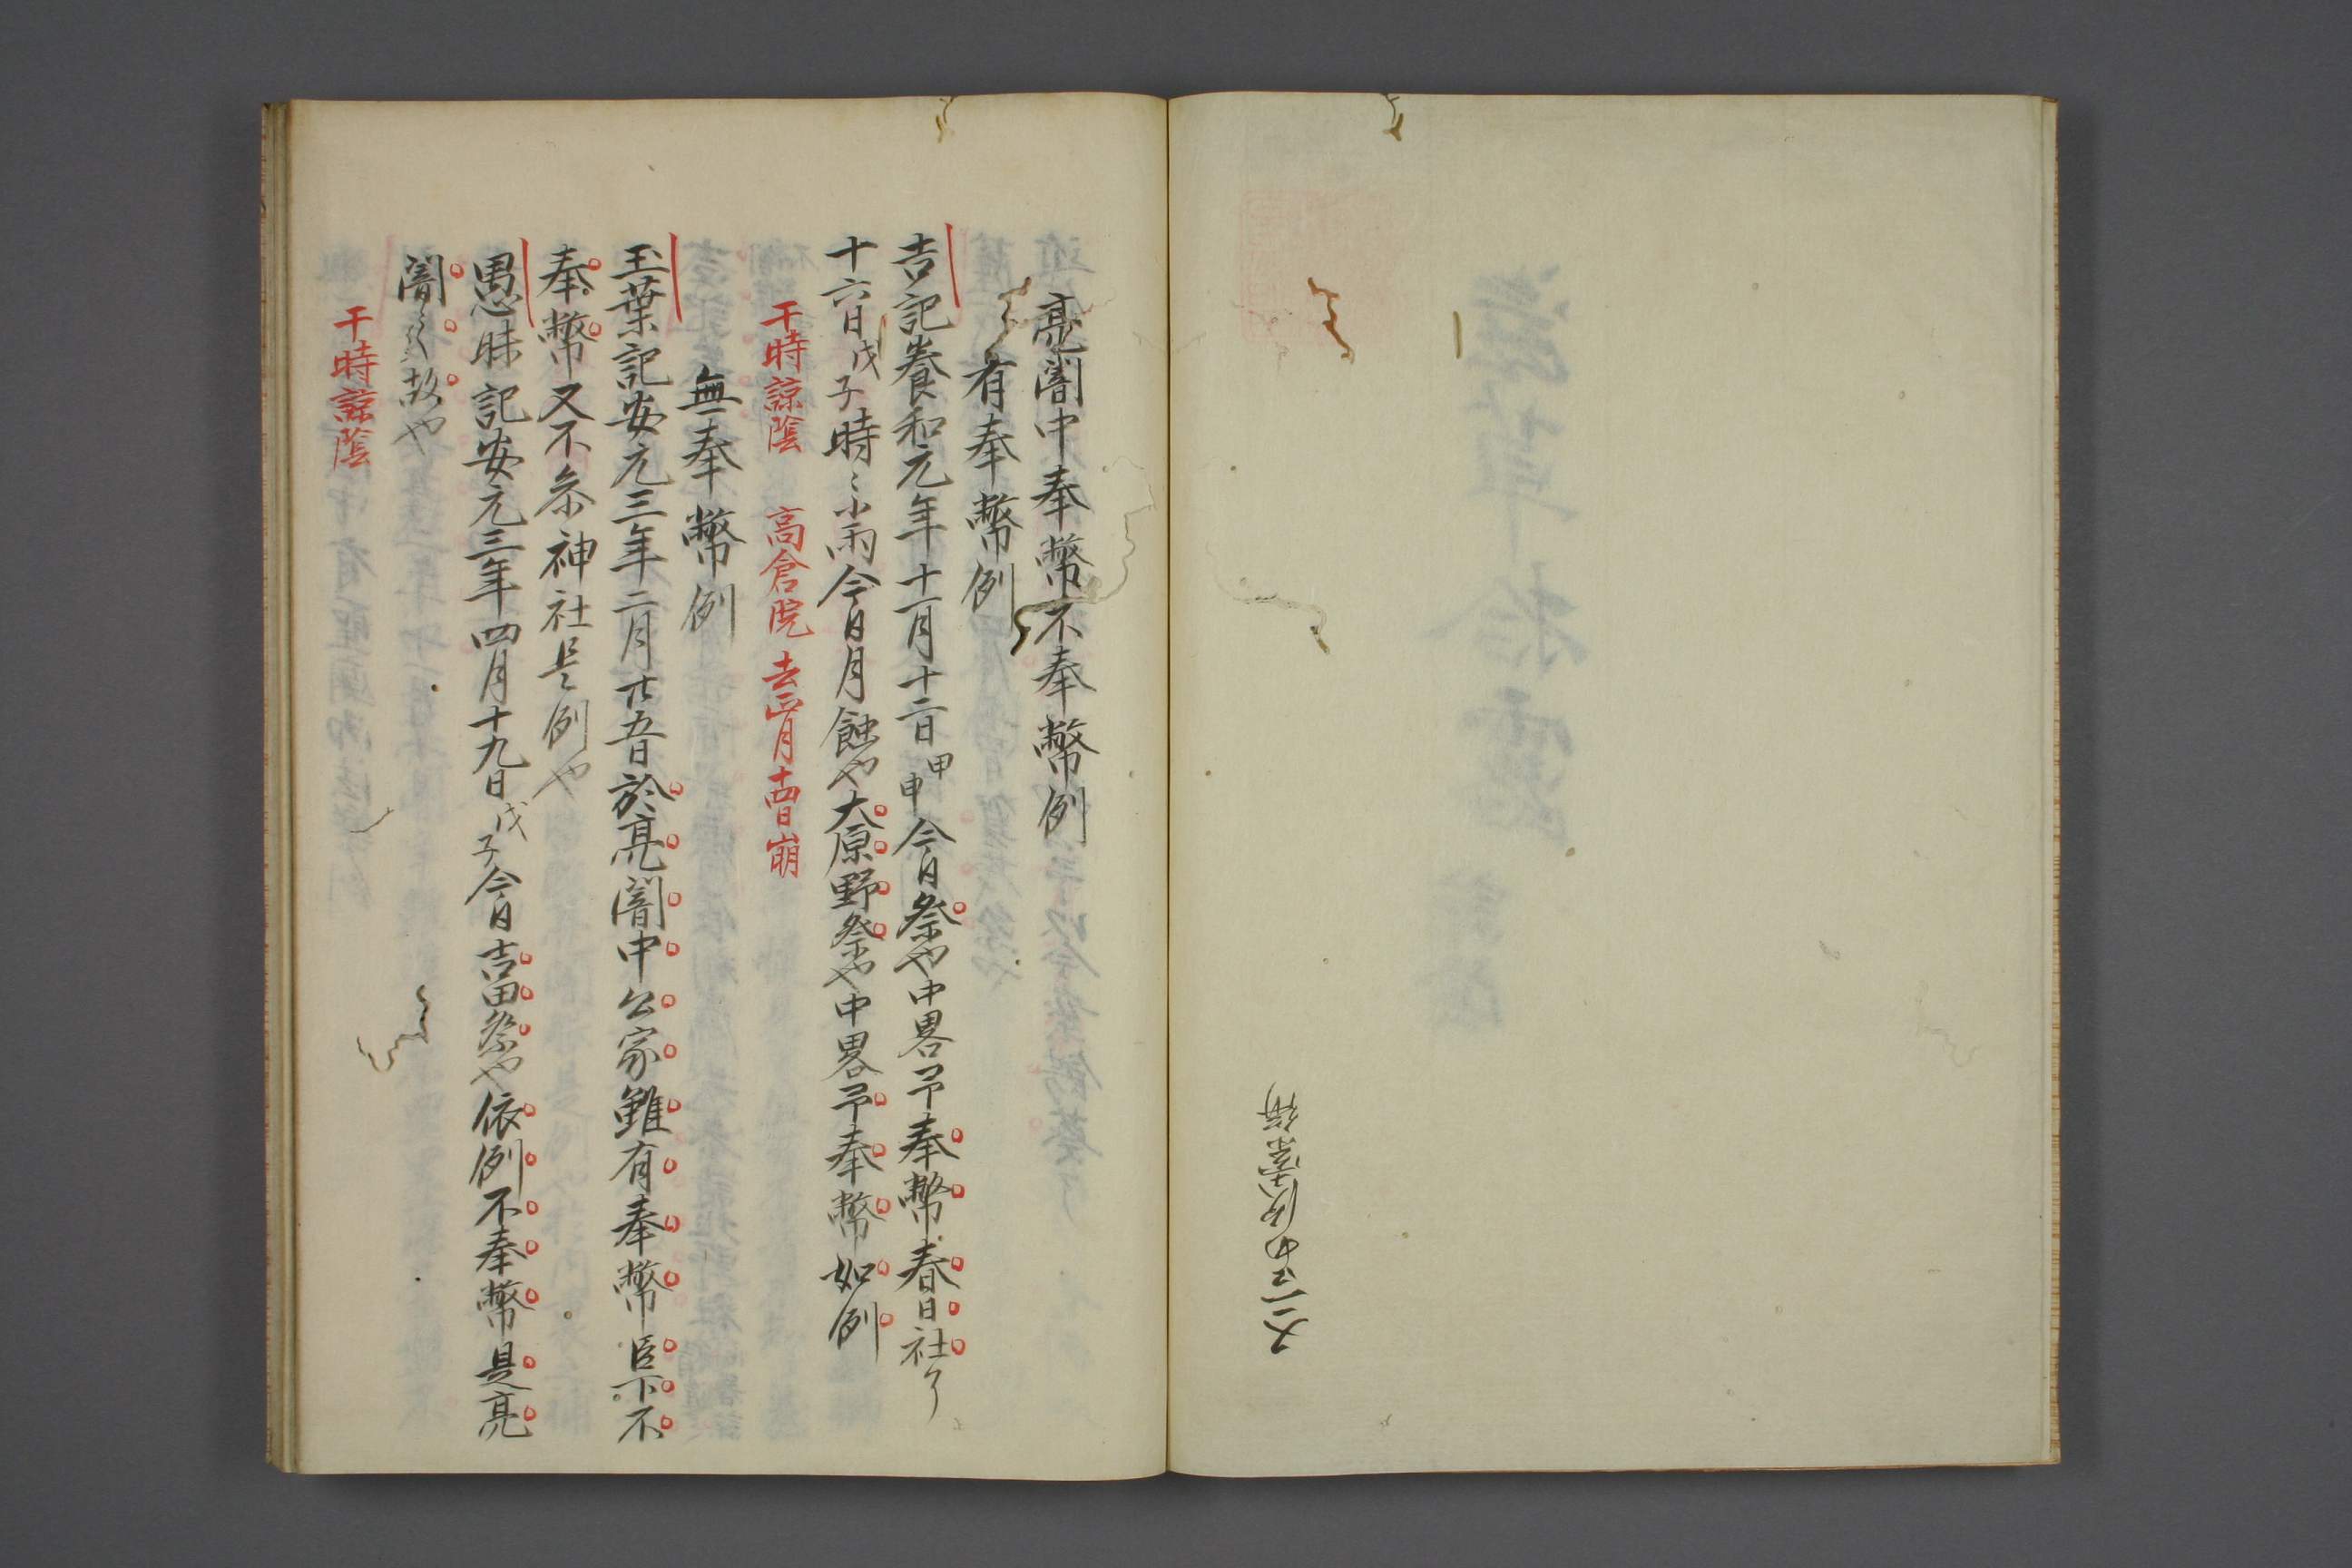 亮闇中奉幣不奉幣例
有奉幣例
吉記養和元年十一月十二日甲申今日祭也中畧予奉幣春日社了
十六日戊子時〻小雨今日月蝕也大原野祭也中畧予奉幣如例
干時諒陰　高倉院　去正月十四日崩
無奉幣例
玉葉記安元三年二月廿五日於亮闇中公家雖有奉幣臣下不
奉幣又不参神社是例也
愚昧記安元三年四月十九日戊子今日吉田祭也依例不奉幣是亮
闇之故也
干時諒陰